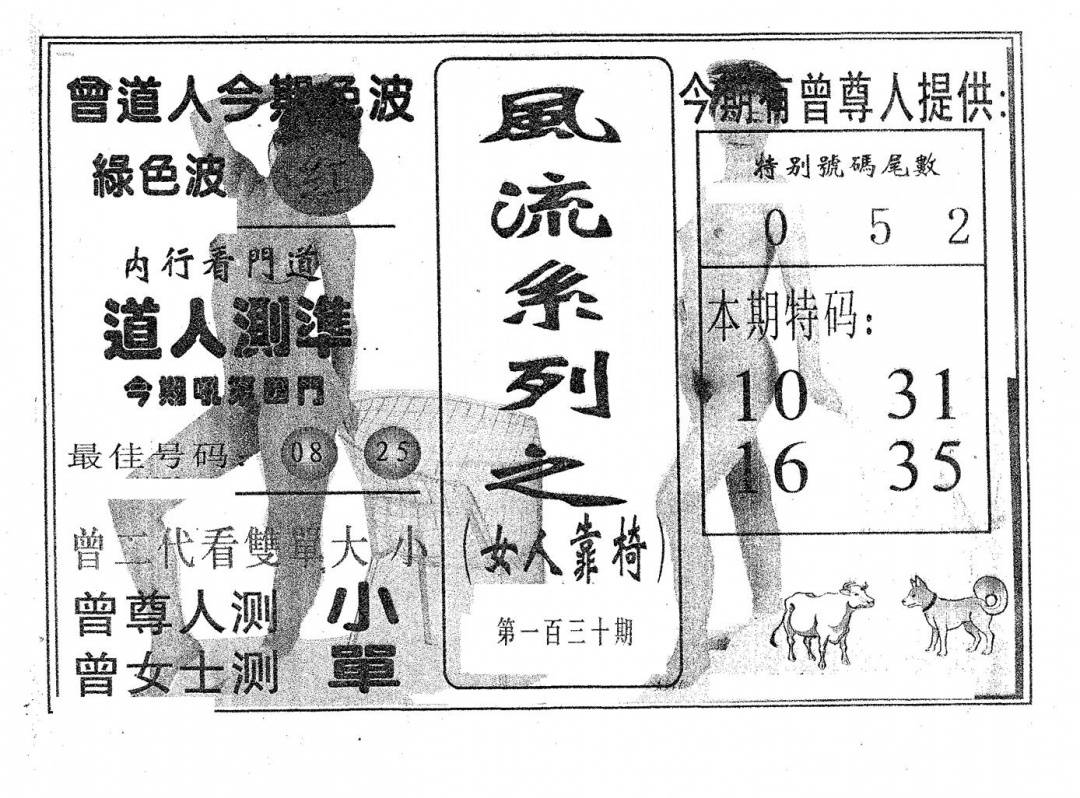 曾道人今期色波
綠色波 紅
内行看門道
道人測準
今期吼四門
最佳号码: 08 25
曾二代看雙單大小
曾尊人测 小
曾女士测 單
風流系列之
(女人靠椅)
第一百三十期
今期有曾尊人提供:
特别號碼尾數
0 5 2
本期特码:
10 31
16 35